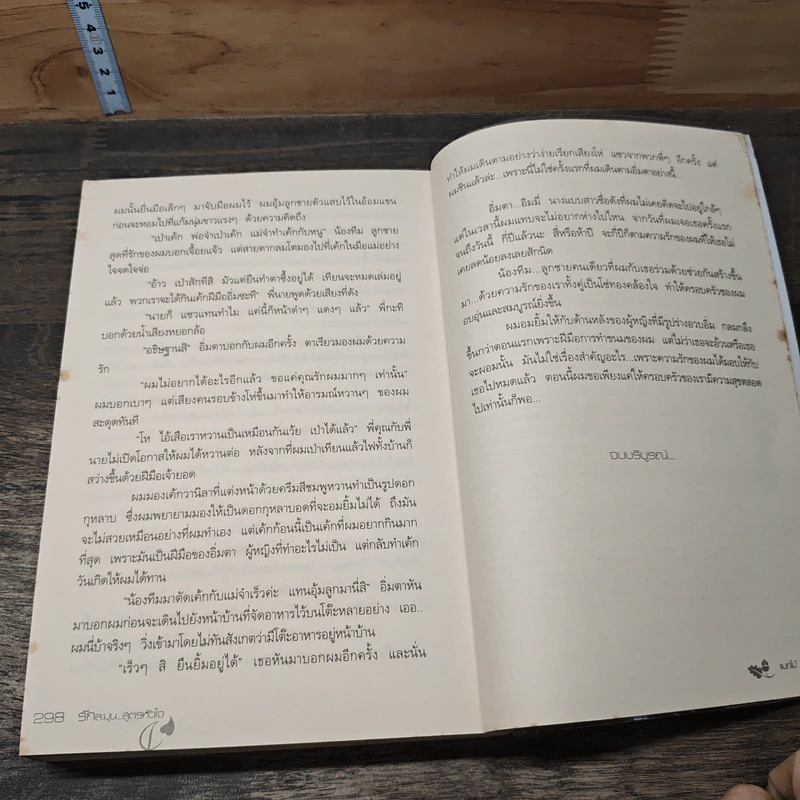 5
4
3
2
1
ผมนั้นยื่นมือเล็กๆ มาจับมือผมไว้ ผมอุ้มลูกชายตัวแสบไว้ในอ้อมแขน
ก่อนจะหอมไปที่แก้มนุ่มขาวแรงๆ ด้วยความคิดถึง
“เป่าเค้ก พ่อจ๋าเป่าเค้ก แม่จ๋าทำเค้กกับหนู” น้องทีม ลูกชาย
สุดที่รักของผมบอกเจื้อยแจ้ว แต่สายตากลมโตมองไปที่เค้กในมือแม่อย่าง
ใจจดใจจ่อ
“อ้าว เป่าสักทีสิ มัวแต่ยืนทำตาซึ้งอยู่ได้ เทียนจะหมดเล่มอยู่
แล้ว พวกเราจะได้กินเค้กฝีมืออิ่มซะที” พี่นายพูดด้วยเสียงที่ดัง
“นายก็ แซวแทนทำไม แค่นี้ก็หน้าดำๆ แดงๆ แล้ว” พี่กะทิ
บอกด้วยน้ำเสียงหยอกล้อ
“อธิษฐานสิ” อิ่มตาบอกกับผมอีกครั้ง ตาเรียวมองผมด้วยความ
รัก
“ผมไม่อยากได้อะไรอีกแล้ว ขอแค่คุณรักผมมากๆ เท่านั้น”
ผมบอกเบาๆ แต่เสียงคนรอบข้างโห่ขึ้นมาทำให้อารมณ์หวานๆ ของผม
สะดุดทันที
“โห ไอ้เสือเราหวานเป็นเหมือนกันเว้ย เป่าได้แล้ว” พี่คุณกับพี่
นายไม่เปิดโอกาสให้ผมได้หวานต่อ หลังจากที่ผมเป่าเทียนแล้วไฟทั้งบ้านก็
สว่างขึ้นด้วยฝีมือเจ้ายอด
ผมมองเค้กวานิลาที่แต่งหน้าด้วยครีมสีชมพูหวานทำเป็นรูปดอก
กุหลาบ ซึ่งผมพยายามมองให้เป็นดอกกุหลาบอดที่จะอมยิ้มไม่ได้ ถึงมัน
จะไม่สวยเหมือนอย่างที่ผมทำเอง แต่เค้กก้อนนี้เป็นเค้กที่ผมอยากกินมาก
ที่สุด เพราะมันเป็นฝีมือของอิ่มตา ผู้หญิงที่ทำอะไรไม่เป็น แต่กลับทำเค้ก
วันเกิดให้ผมได้ทาน
“น้องทีมมาตัดเค้กกับแม่จ๋าเร็วค่ะ แทนอุ้มลูกมานี่สิ” อิ่มตาหัน
มาบอกผมก่อนจะเดินไปยังหน้าบ้านที่จัดอาหารไว้บนโต๊ะหลายอย่าง เออ..
ผมนี่บ้าจริงๆ วิ่งเข้ามาโดยไม่ทันสังเกตว่ามีโต๊ะอาหารอยู่หน้าบ้าน
“เร็วๆ สิ ยืนยิ้มอยู่ได้” เธอหันมาบอกผมอีกครั้ง และนั่น
298 รักละมุน...สูตรหัวใจ
ทำให้ผมเดินตามอย่างว่าง่ายเรียกเสียงโห่ แซวจากพวกพี่ๆ อีกครั้ง แต่
ผมชินแล้วล่ะ...เพราะนี่ไม่ใช่ครั้งแรกที่ผมเดินตามอิ่มตาอย่างนี้...
อิ่มตา..อิมมี่ นางแบบสาวชื่อดังที่ผมไม่เคยคิดจะไปอยู่ใกล้ๆ
แต่ในเวลานี้ผมแทบจะไม่อยากห่างไปไหน จากวันที่ผมเจอเธอครั้งแรก
จนถึงวันนี้ กี่ปีแล้วนะ สี่หรือห้าปี จะกี่ปีก็ตามความรักของผมที่ให้เธอไม่
เคยลดน้อยลงเลยสักนิด
น้องทีม...ลูกชายคนเดียวที่ผมกับเธอร่วมด้วยช่วยกันสร้างขึ้น
มา...ด้วยความรักของเราทั้งคู่เป็นโซ่ทองคล้องใจ ทำให้ครอบครัวของผม
อบอุ่นและสมบูรณ์ยิ่งขึ้น
ผมอมยิ้มให้กับด้านหลังของผู้หญิงที่มีรูปร่างอวบอิ่ม กลมกลึง
ขึ้นกว่าตอนแรกเพราะฝีมือการทำขนมของผม แต่ไม่ว่าเธอจะอ้วนหรือเธอ
จะผอมนั้น มันไม่ใช่เรื่องสำคัญอะไร...เพราะความรักของผมได้มอบให้กับ
เธอไปหมดแล้ว ตอนนี้ผมขอเพียงแค่ให้ครอบครัวของเรามีความสุขตลอด
ไปเท่านั้นก็พอ...
จบบริบูรณ์...